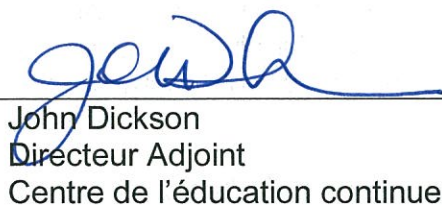 John Dickson
Directeur Adjoint
Centre de l'éducation continue